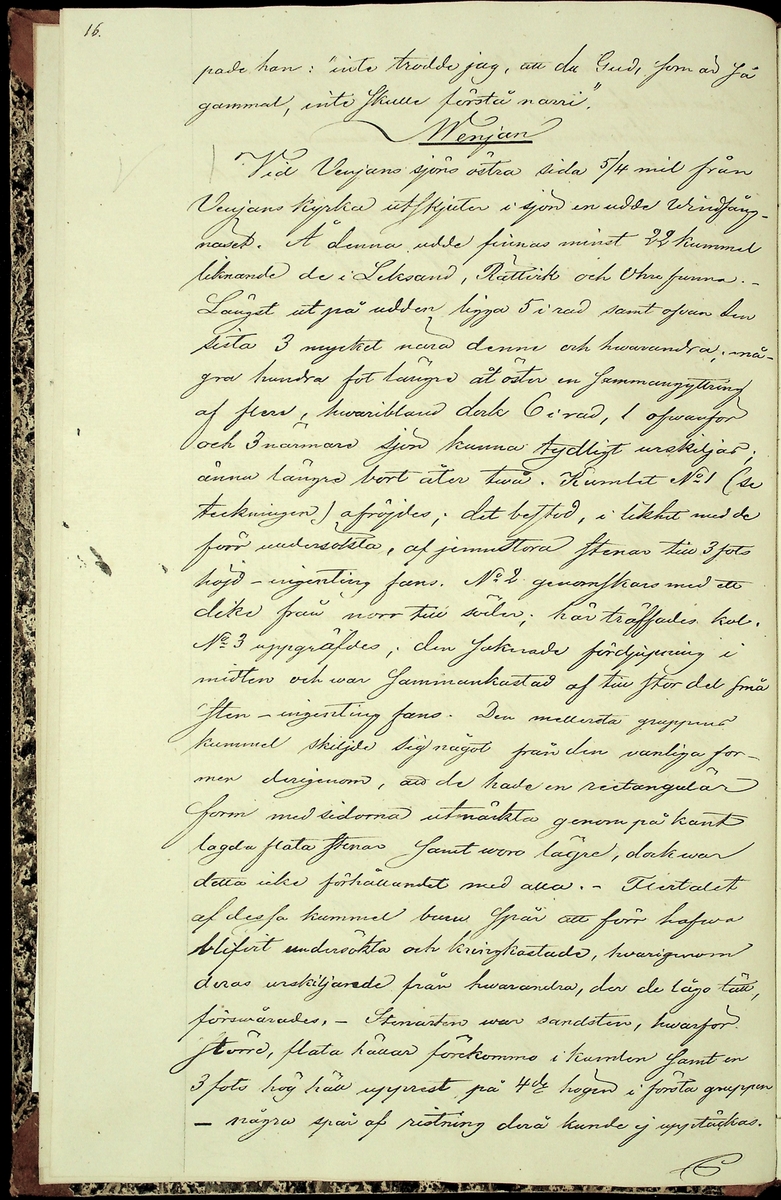 16.
pade han: "inte trodde jag, att du Gud, som är så
gammal, inte skulle förstå narri".
Wenjan
Vid Venjans sjöns östra sida 5/4 mil från
Venjans kyrka utskjuter i sjön en udde Windfång-
näset. Å denna udde finnas minst 22 kummel
liknande de i Leksand, Rättvik och Ohre funna. -
Längst ut på udden ligga 5 i rad samt ofvan den
sista 3 mycket nära denne och hwarandra; nå-
gra hundra fot längre åt öster en sammangyttring
af flere, hwaribland dock 6 i rad, 1 ofwanför
och 3 närmare sjön kunna tydligt urskiljas;
ännu längre bort åter twå. Kumlet No 1 (se
teckningen) afröjdes; det bestod, i likhet med de
förr undersökta, af jemnstora stenar till 3 fots
höjd - ingenting fans. No 2 genomskars med ett
dike från norr till söder; här träffades kol.
No 3 uppgräfdes; den saknade fördjupning i
midten och war sammankastad af till stor del små
sten - ingenting fans. Den mellersta gruppens
kummel skiljde sig något från den vanliga for-
men derigenom, att de hade en rectangulär
form med sidorna utmärkta genom på kant
lagda flata stenar samt woro lägre, dock war
detta icke förhållandet med alla. - Flertalet
af dessa kummel buro spår att förr hafwa
blifvit undersökta och kringkastade, hwarigenom
deras urskiljande från hwarandra, der de lågo tätt,
förswårades. - Stenarten war sandsten, hwarför
större, flata hällar förekommo i kumlen samt en
3 fots hög häll upprest på 4de högen i första gruppen
- några spår af ristning derå kunde ej upptäckas.